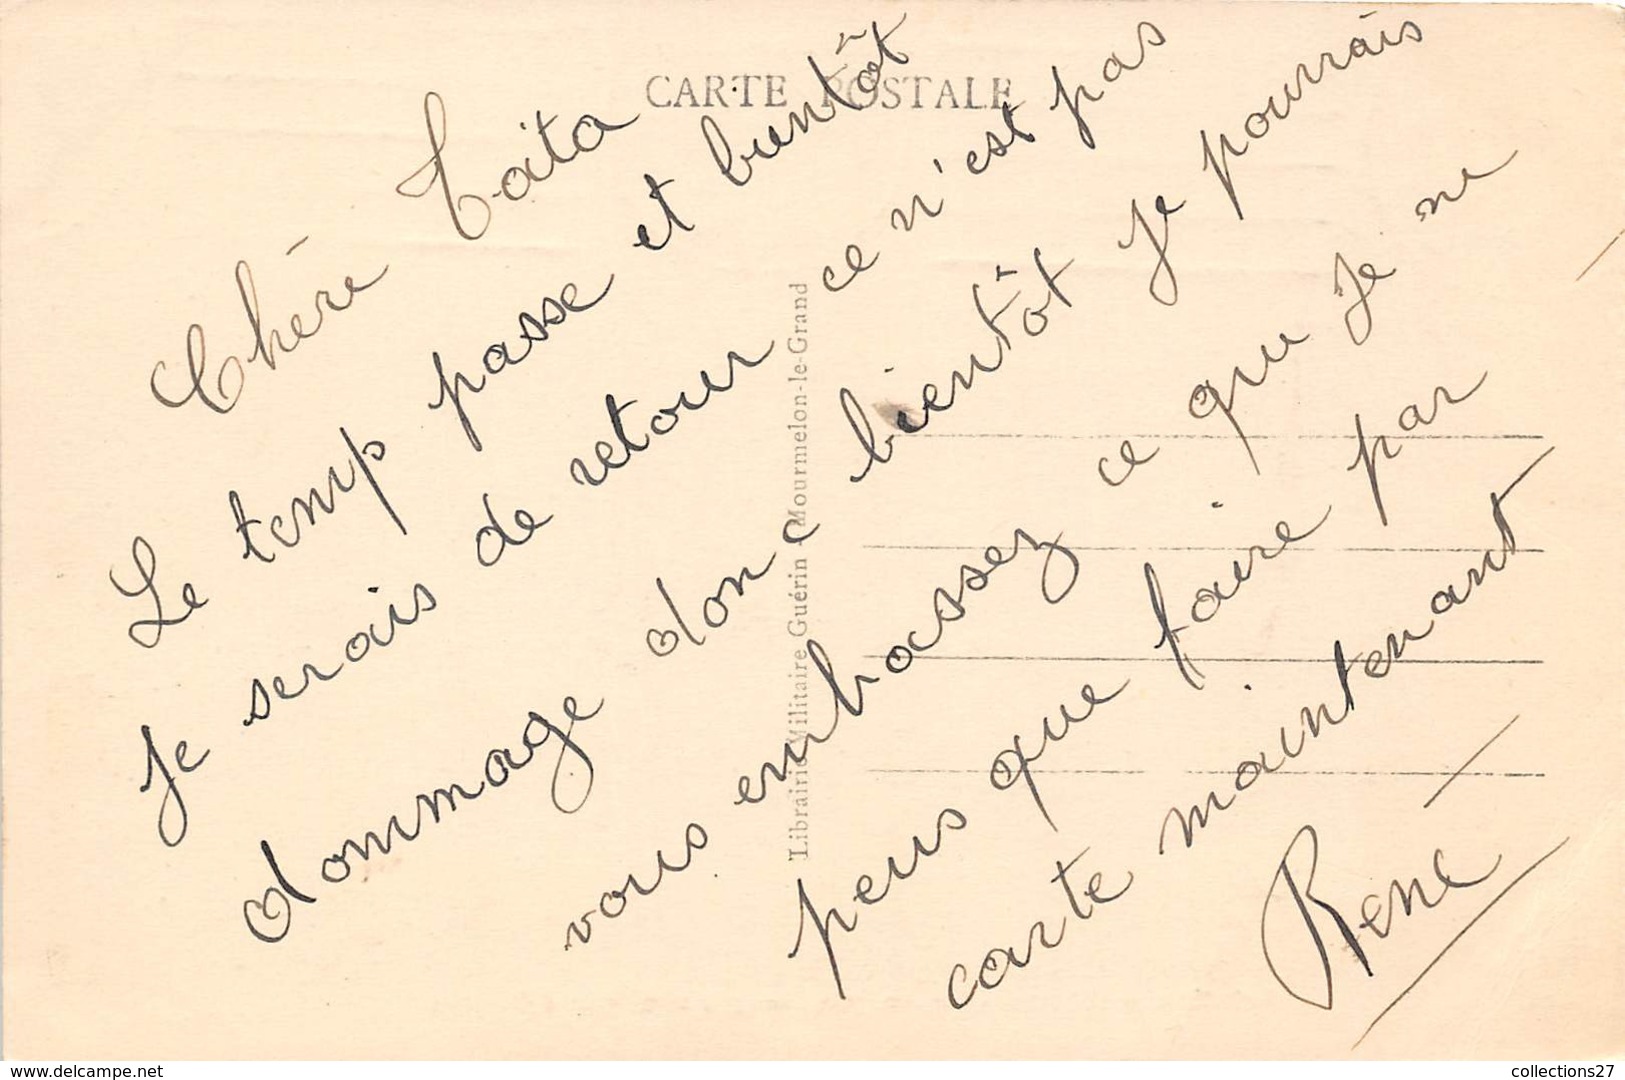 CARTE POSTALE
Chère Taita
Le temp passe et bientôt
Je serais de retour ce n'est pas
dommage donc bientôt Je pourrais
vous embrassez ce que Je ne
peus que faire par
carte maintenant
René
Librairie Militaire Guérin - Mourmelon-le-Grand
www.delcampe.net
collections27